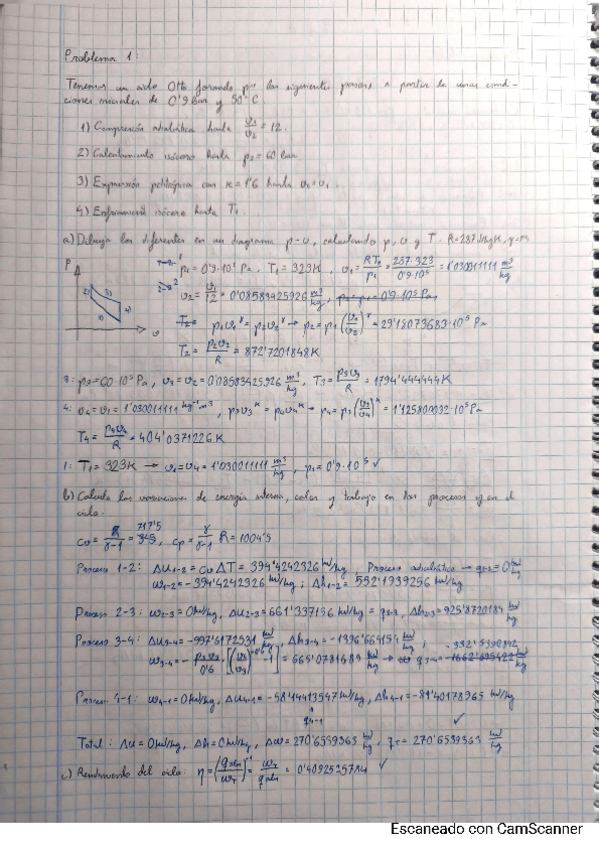 Problema 1:
Tenemos un ciclo Otto formado por los siguientes procesos a partir de unas condi-
ciones iniciales de 0'9 bar y 50°C.
1) Compresión adiabática hasta v₁/v₂ = 12.
2) Calentamiento isócoro hasta p₃ = 60 bar
3) Expansión politrópica con k = 1'6 hasta v₄ = v₁.
4) Enfriamiento isócoro hasta T₁.
a) Dibuja los diferentes en un diagrama p-v, calculando p, v y T. R=287 J/kgK
p₁ = 0'9·10⁵ Pa, T₁ = 323K, v₁ = RT₁/p₁ = 287·323/0'9·10⁵ = 1'030011111 m³/kg
v₂ = v₁/12 = 0'08583425926 m³/kg
p₁v₁^γ = p₂v₂^γ → p₂ = p₁(v₁/v₂)^γ = 29'18073683·10⁵ Pa
T₂ = p₂v₂/R = 872'7201848 K
3: p₃ = 60·10⁵ Pa, v₃ = v₂ = 0'08583425926 m³/kg, T₃ = p₃v₃/R = 1794'444444 K
4: v₄ = v₁ = 1'030011111 kg⁻¹m³, p₃v₃^k = p₄v₄^k → p₄ = p₃(v₃/v₄)^k = 1'125800032·10⁵ Pa
T₄ = p₄v₄/R = 404'0371226 K
1: T₁ = 323K → v₁ = v₄ = 1'030011111 m³/kg, p₁ = 0'9·10⁵ ✓
b) Calcula las variaciones de energía interna, calor y trabajo en los procesos y en el
ciclo.
cv = R/γ-1 = 717'5, cp = γ/γ-1 R = 1004'5
Proceso 1-2: Δu₁₋₂ = cv ΔT = 394'4242326 kJ/kg, Proceso adiabático → q₁₋₂ = 0 kJ/kg
w₁₋₂ = -394'4242326 kJ/kg; Δh₁₋₂ = 552'1939256 kJ/kg
Proceso 2-3: w₂₋₃ = 0 kJ/kg, Δu₂₋₃ = 661'337156 kJ/kg = q₂₋₃, Δh₂₋₃ = 925'8720184 kJ/kg
Proceso 3-4: Δu₃₋₄ = -997'6172531 kJ/kg, Δh₃₋₄ = -1396'664154 kJ/kg;
w₃₋₄ = 665'0781683 kJ/kg →
Proceso 4-1: w₄₋₁ = 0 kJ/kg, Δu₄₋₁ = -58'14413547 kJ/kg, Δh₄₋₁ = -81'40178965 kJ/kg
q₄₋₁
Total: Δu = 0 kJ/kg, Δh = 0 kJ/kg, Δw = 270'6539363 kJ/kg, q = 270'6539363 kJ/kg
c) Rendimiento del ciclo:
Escaneado con CamScanner